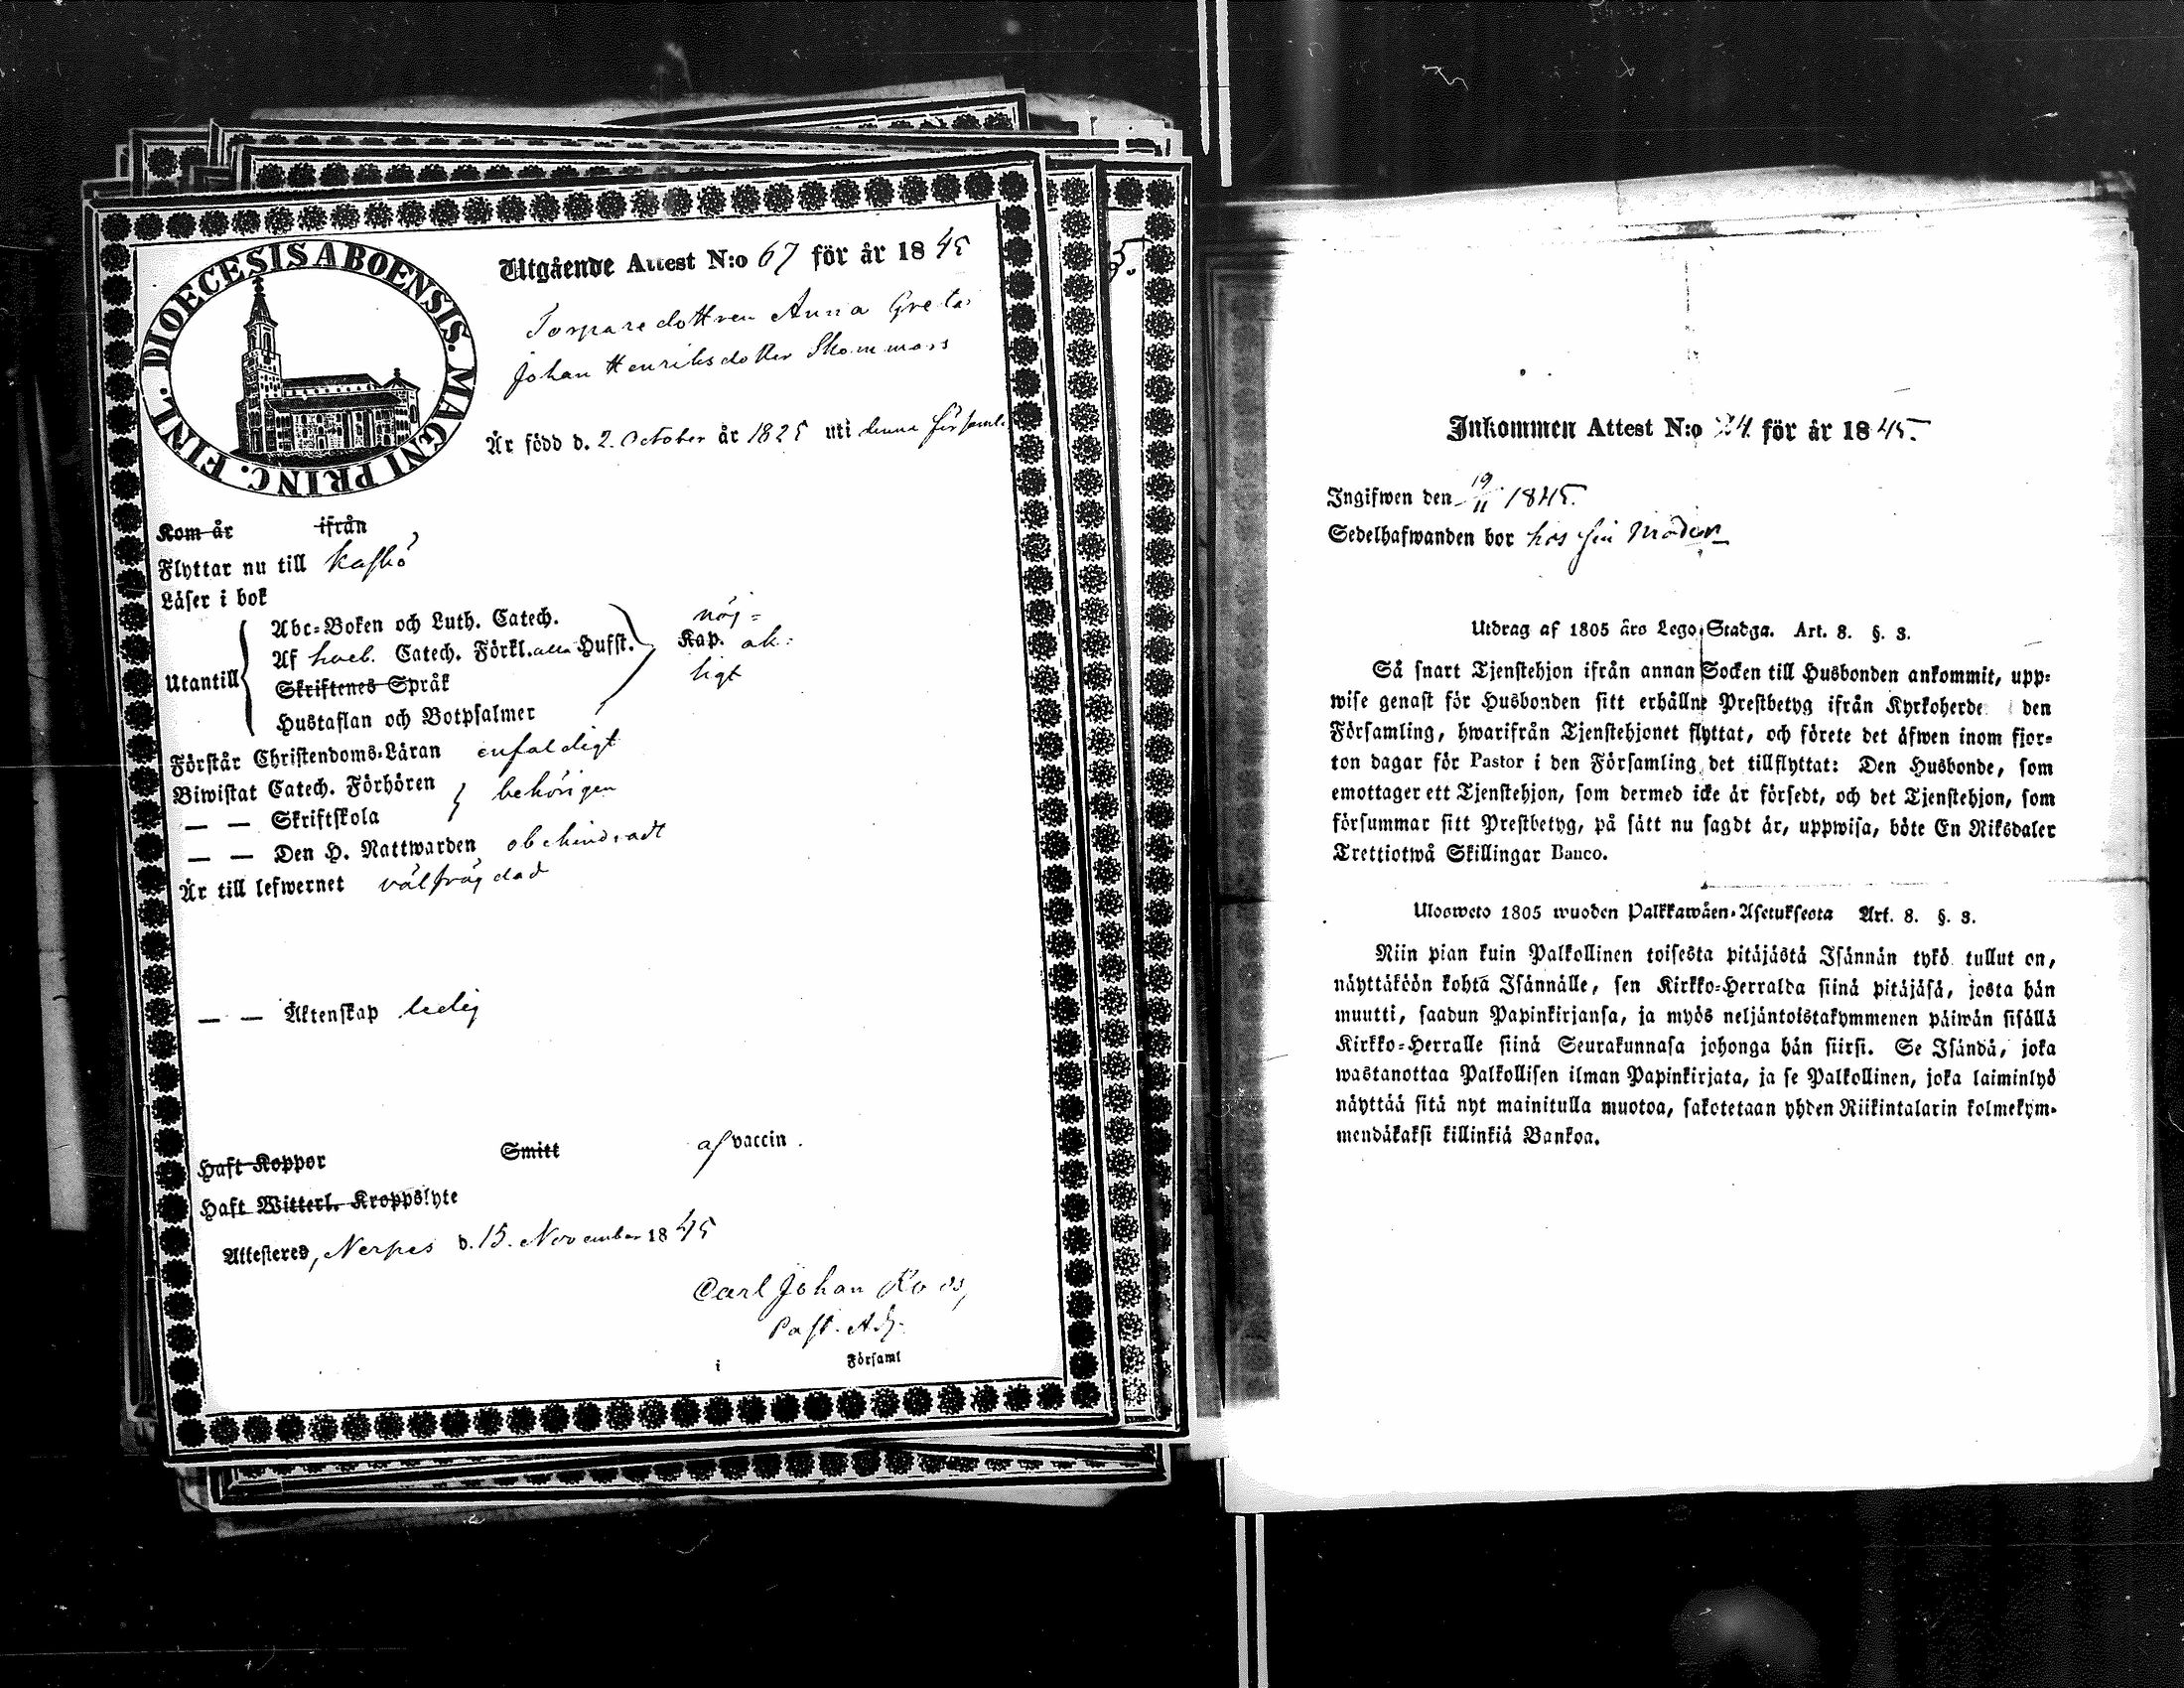 DIOECESIS ABOENSIS. MAGNI PRINC. FINL.
Utgående Attest N:o 67 för år 1845
Torparedottren Anna Greta
Johan Henriksdotter Skommars
Är född d. 2. October år 1825 uti denna församl.
Kom år ifrån
Flyttar nu till Kaskö
Läser i bok
Utantill
Abc-Boken och Luth. Catech.
Af hveb. Catech. Förkl. alla Hufst.
Skriftenes Språk
Hustaflan och Botpsalmer
nöj=
Kap. ak=
ligt
Förstår Christendoms-Läran enfaldigt
Biwistat Catech. Förhören
— — Skriftskola
behörigen
— — Den H. Nattwarden obehindradt
Är till lefwernet välfrägdad
— — Äktenskap ledig
Haft Koppor Smitt af vaccin.
Haft Witterl. Kroppslyte
Attesteres, Nerpes d. 15. November 1845
Carl Johan Roos,
Past. Adj.
i Församl
5.
Inkommen Attest N:o 24 för år 1845.
Ingifwen den 19/11 1845.
Sedelhafwanden bor hos sin Moder
Utdrag af 1805 års Lego-Stadga. Art. 8. §. 3.
Så snart Tjenstehjon ifrån annan Socken till Husbonden ankommit, upp=
wise genast för Husbonden sitt erhållne Prestbetyg ifrån Kyrkoherde den
Församling, hwarifrån Tjenstehjonet flyttat, och förete det äfwen inom fjor=
ton dagar för Pastor i den Församling det tillflyttat: Den Husbonde, som
emottager ett Tjenstehjon, som dermed icke är försedt, och det Tjenstehjon, som
försummar sitt Prestbetyg, på sätt nu sagdt är, uppwisa, böte En Riksdaler
Trettiotwå Skillingar Banco.
Ulosweto 1805 wuoden Palkkawäen-Asetuksesta Art. 8. §. 3.
Niin pian kuin Palkollinen toisesta pitäjästä Isännän tykö tullut on,
näyttäköön kohta Isännälle, sen Kirkko=Herralda siinä pitäjäsä, josta hän
muutti, saadun Papinkirjansa, ja myös neljäntoistakymmenen päiwän sisällä
Kirkko=Herralle siinä Seurakunnasa johonga hän siirsi. Se Isändä, joka
wastanottaa Palkollisen ilman Papinkirjata, ja se Palkollinen, joka laiminlyö
näyttää sitä nyt mainitulla muotoa, sakotetaan yhden Riikintalarin kolmekym=
mendäkaksi killinkiä Bankoa.